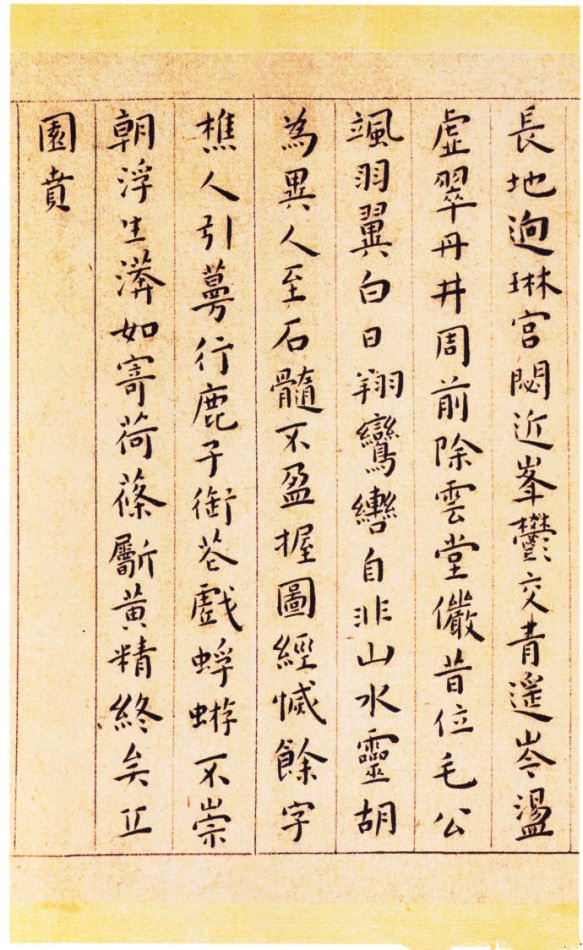 長地迥琳宮閟近峯鬱交青遥岑盪
虛翠丹井周前除雲堂儼昔位毛公
颯羽翼白日翔鸞轡自非山水靈胡
為異人至石髓不盈握圖經恱餘字
樵人引蕚行鹿子銜花戲蜉蝣不崇
朝浮生漭如寄荷篠斸黄精終矣丘
園賁